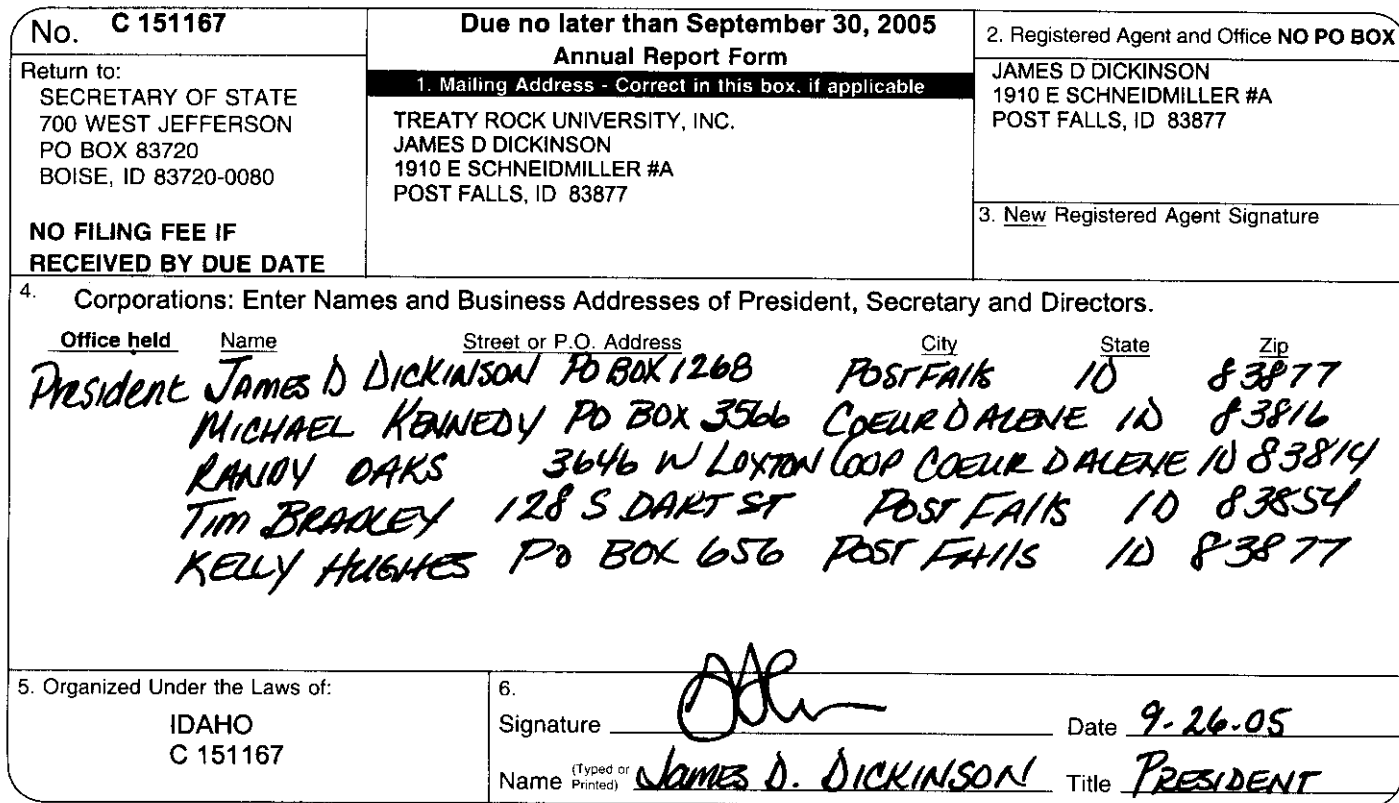 No. C 151167
Return to:
SECRETARY OF STATE
700 WEST JEFFERSON
PO BOX 83720
BOISE, ID 83720-0080
NO FILING FEE IF
RECEIVED BY DUE DATE
Due no later than September 30, 2005
Annual Report Form
1. Mailing Address - Correct in this box, if applicable
TREATY ROCK UNIVERSITY, INC.
JAMES D DICKINSON
1910 E SCHNEIDMILLER #A
POST FALLS, ID 83877
2. Registered Agent and Office NO PO BOX
JAMES D DICKINSON
1910 E SCHNEIDMILLER #A
POST FALLS, ID 83877
3. New Registered Agent Signature
4. Corporations: Enter Names and Business Addresses of President, Secretary and Directors.
Office held Name Street or P.O. Address City State Zip
President JAMES D DICKINSON PO BOX 1268 POST FAllS ID 83877
MICHAEL KENNEDY PO BOX 3566 COEUR D ALENE ID 83816
RANDY OAKS 3646 W LOXTON LOOP COEUR D ALENE ID 83814
TIM BRADLEY 128 S DART ST POST FAllS ID 83854
KELLY HUGHES PO BOX 656 POST FAllS ID 83877
5. Organized Under the Laws of:
IDAHO
C 151167
6.
Signature Date 9-26-05
Name (Typed or Printed) JAMES D. DICKINSON Title PRESIDENT